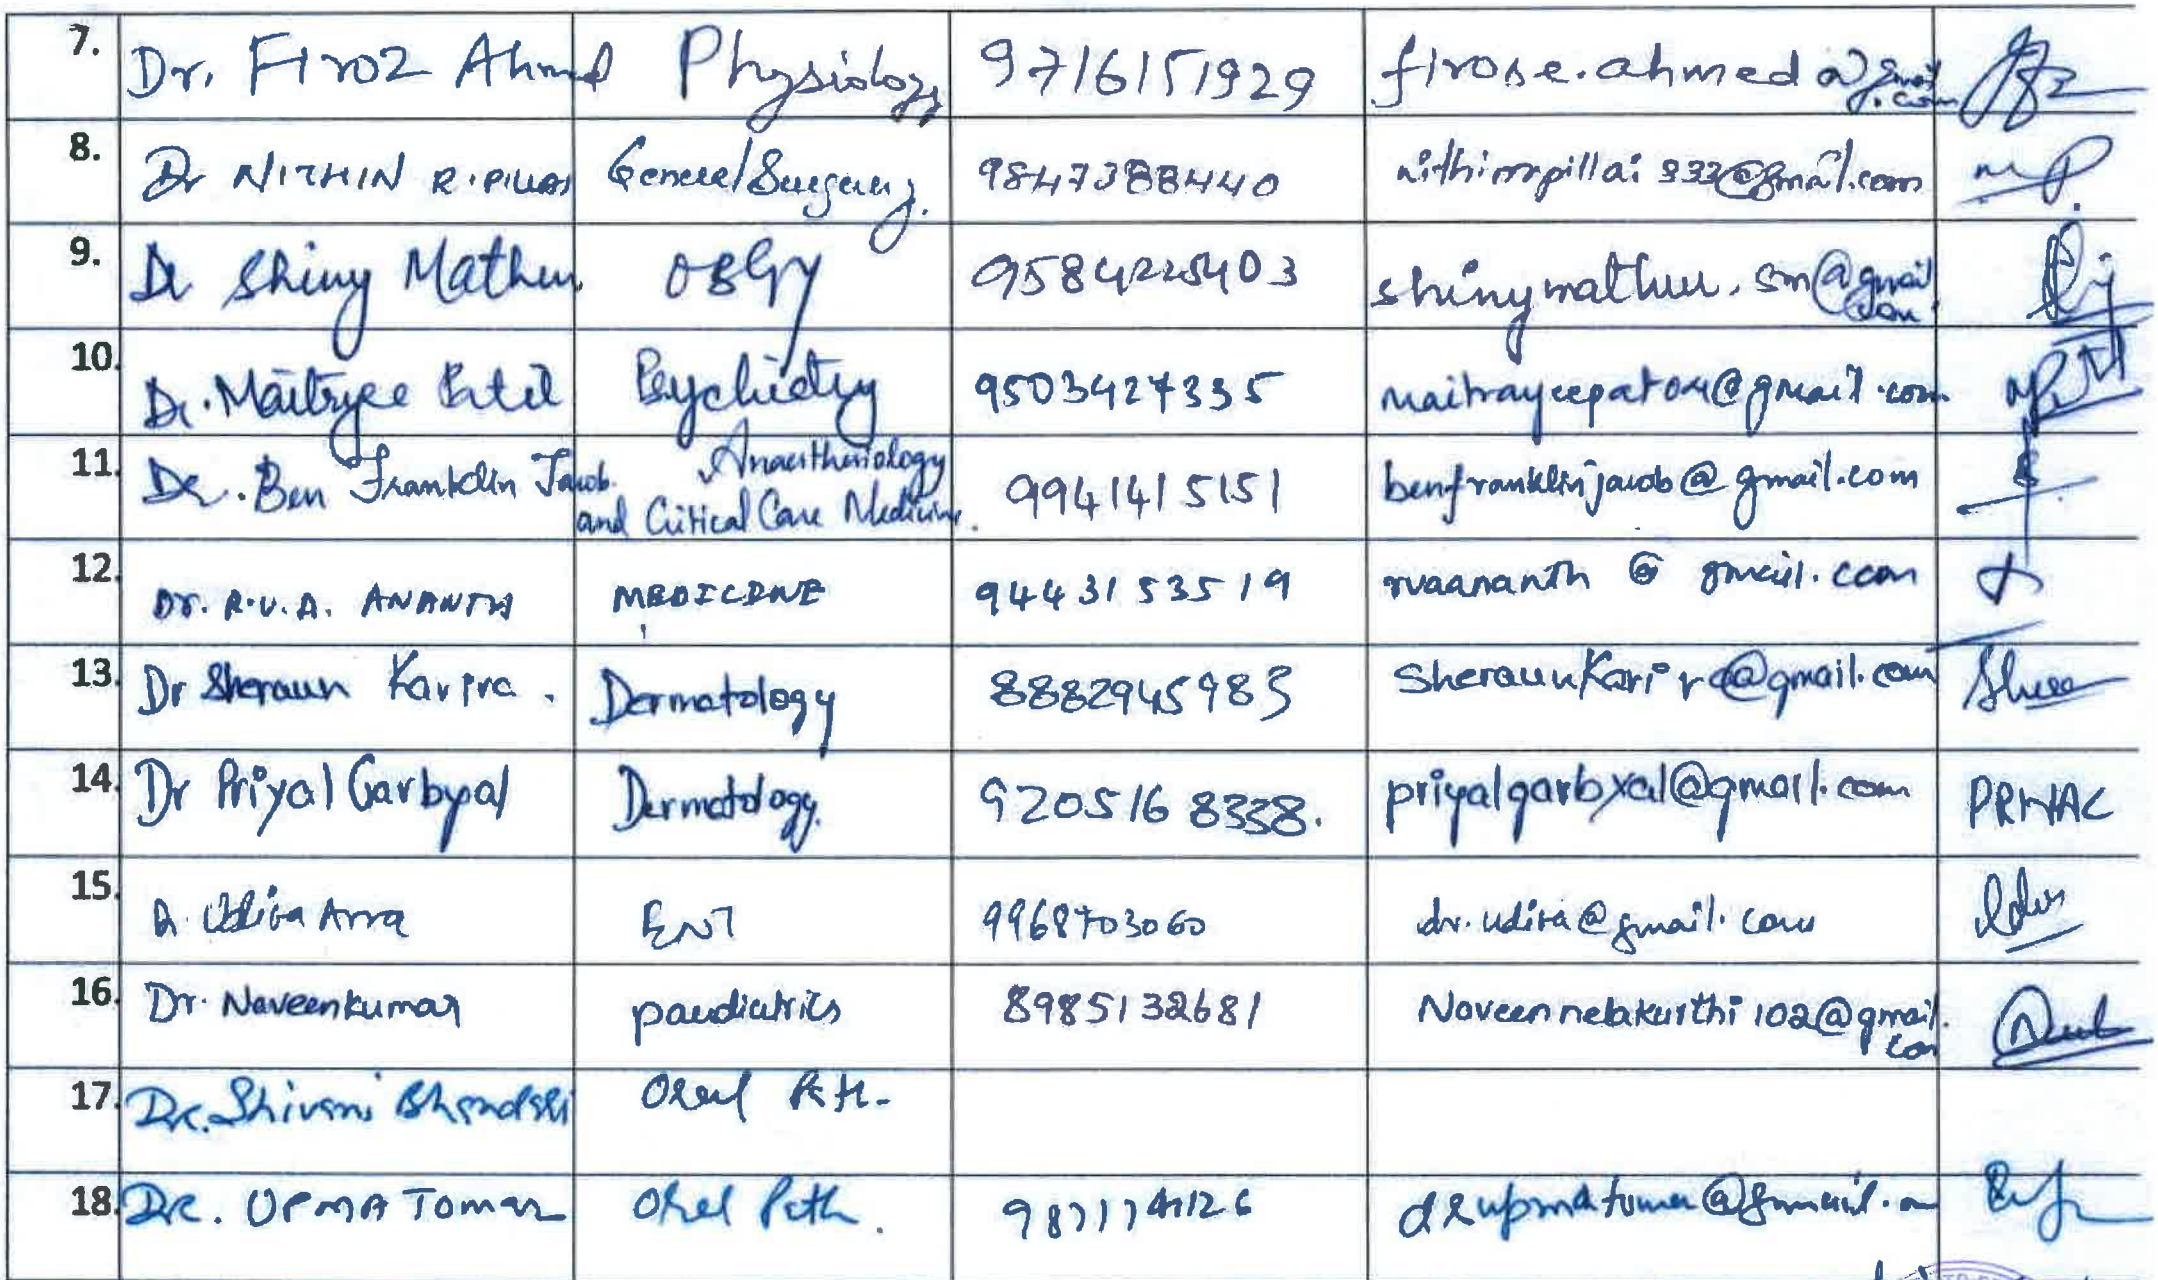 7. Dr. Firoz Ahmed Physiology 9716151929 firose.ahmed@gmail.com
8. Dr NITHIN R. PILLAI General Surgery. 9847388440 nithinrpillai333@gmail.com
9. Dr Shiny Mathew OBGY 9584225403 shinymathew.sm@gmail.com
10. Dr. Maitryee Patil Psychiatry 9503427335 @gmail.com
11. Dr. Ben Franklin Jacob. Anaesthesiology and Critical Care Medicine. 9941415151 benfranklinjacob@gmail.com
12. Dr. R.V.A. ANANTH MEDICINE 9443153519 rvaananth@gmail.com
13. Dr Sheraun Karira. Dermatology 8882945983 Sheraunkarira@gmail.com
14. Dr Priyal Garbyal Dermatology 9205168338. priyalgarbyal@gmail.com
15. Dr. Udita Arora ENT 9968703060 dr.udita@gmail.com
16. Dr. Naveenkumar paediatrics 8985132681 @gmail.com
17. Dr. Shivani Bhandari Oral Path.
18. DR. UPMA TOMAR Oral Path.